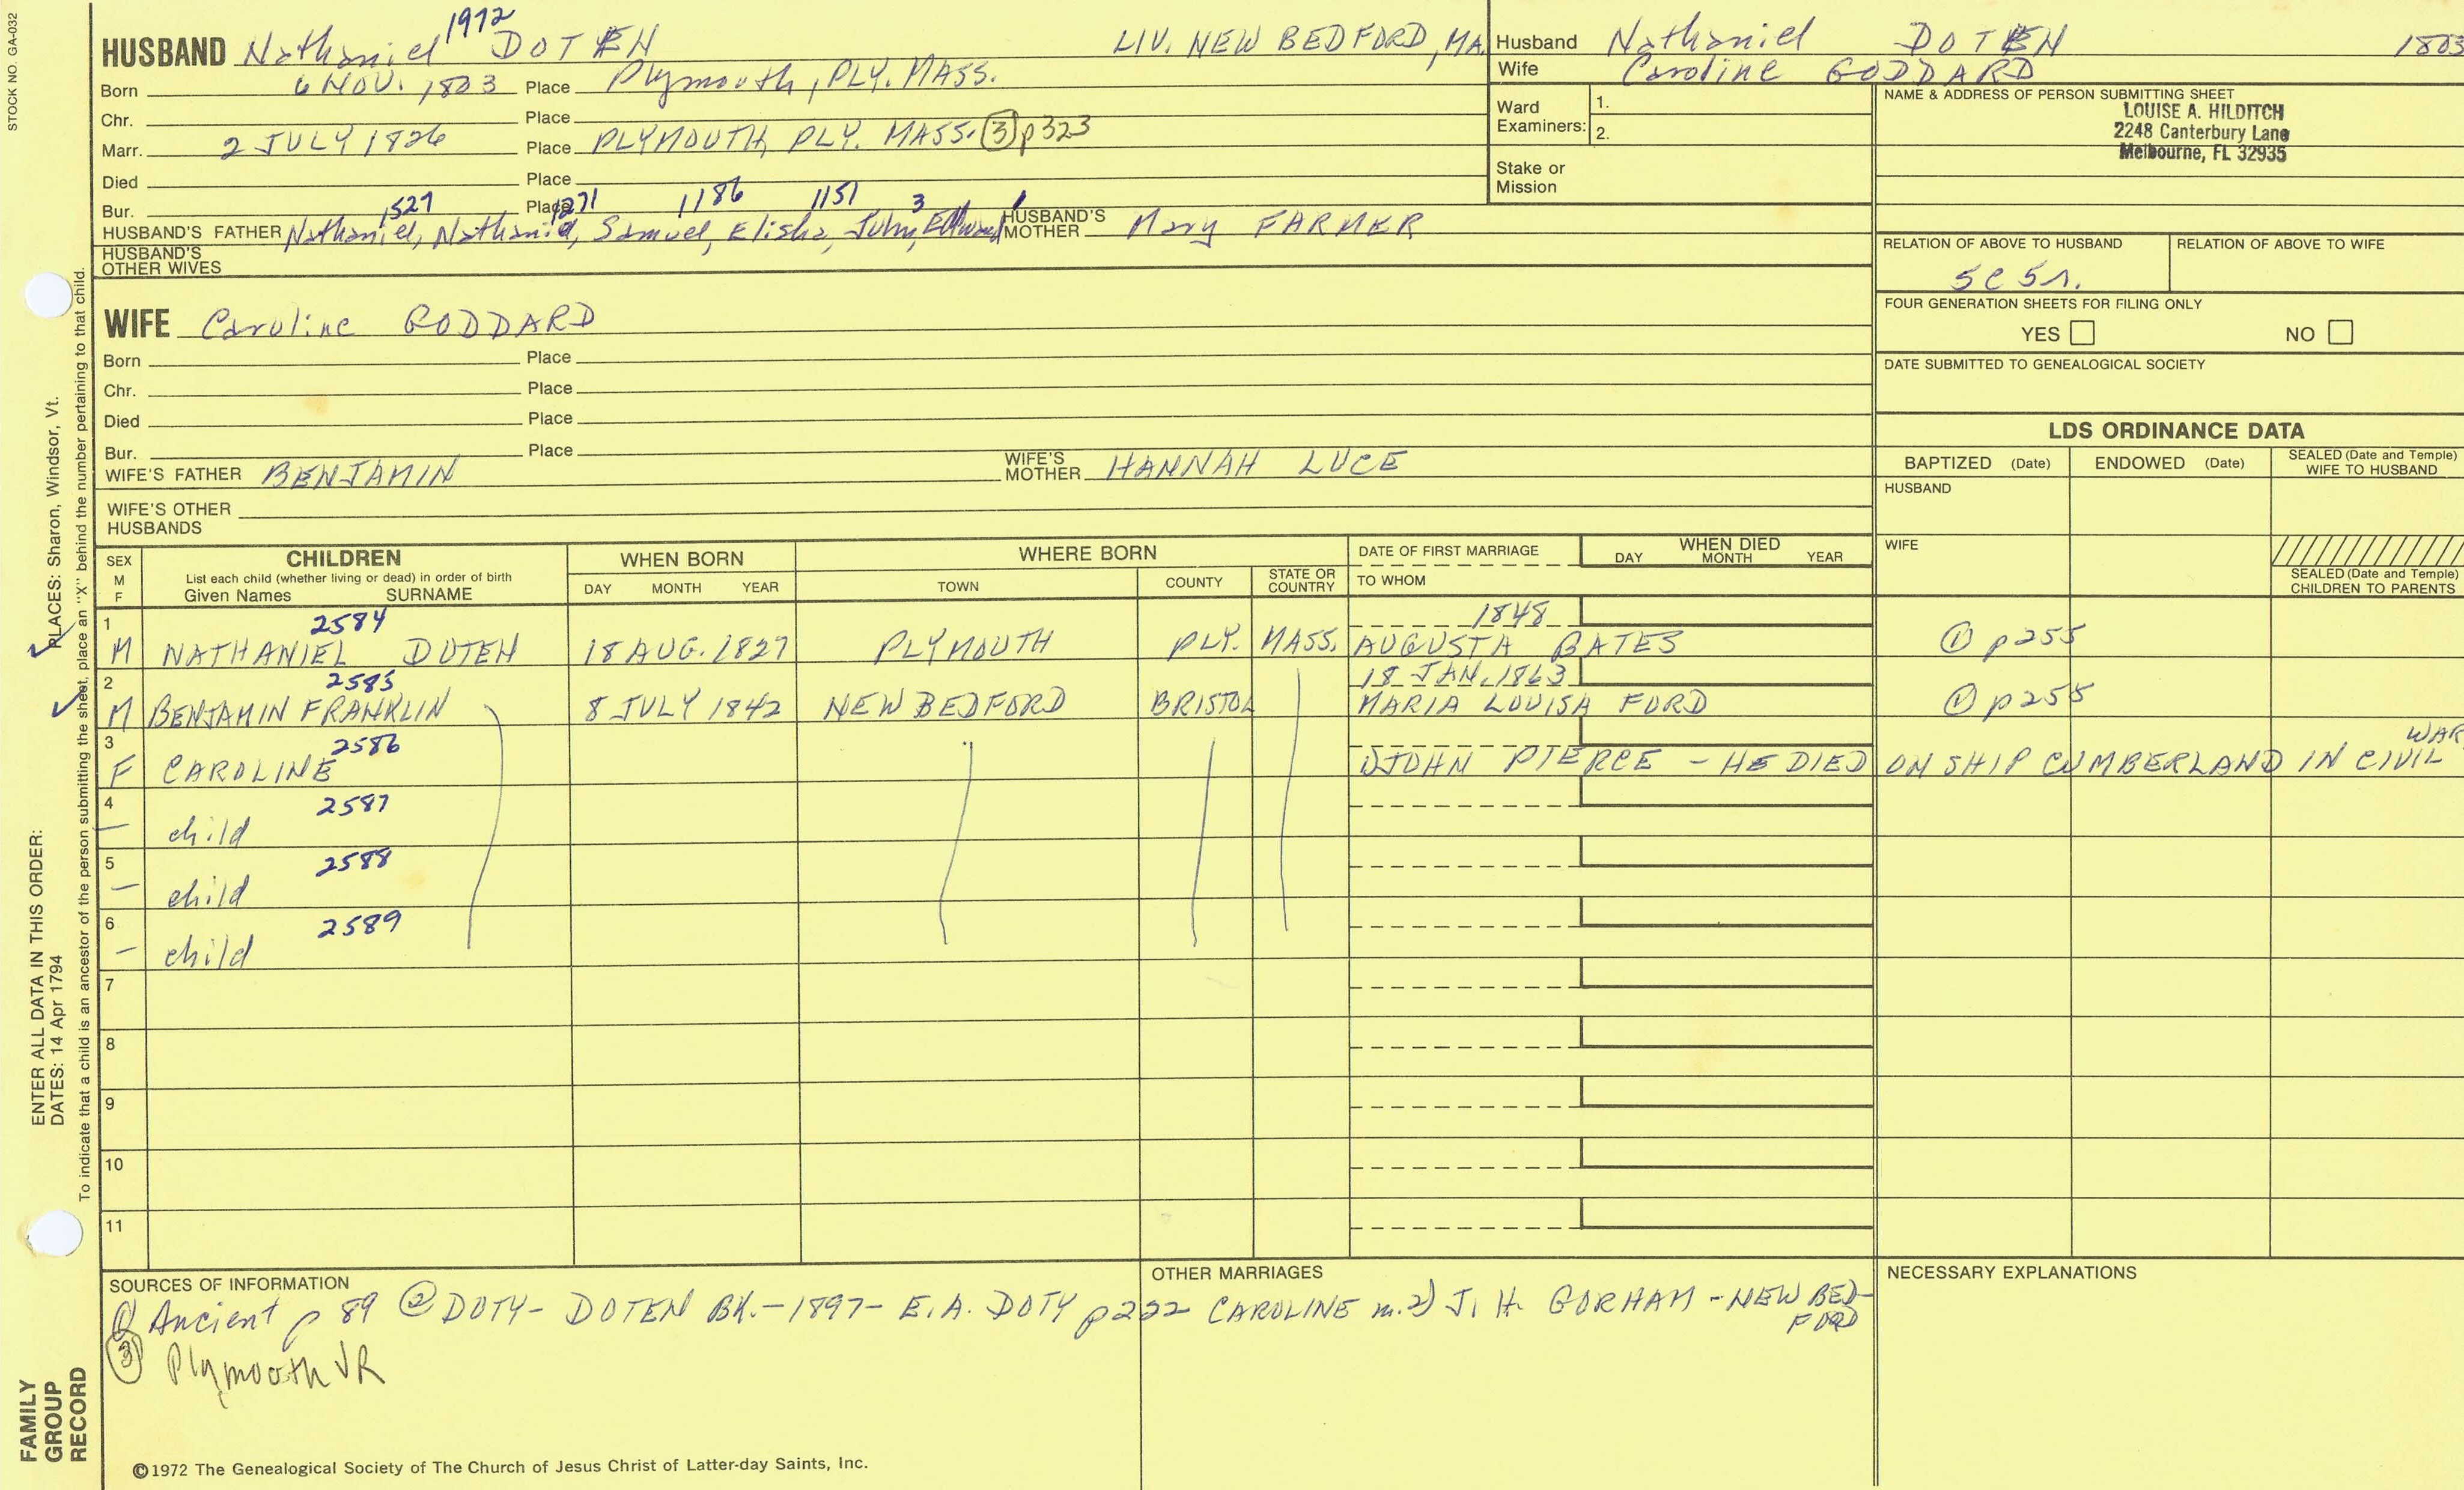 STOCK NO. GA-032
1972
HUSBAND Nathaniel DOTEN LIV. NEW BEDFORD, MA.
Born 6 NOV. 1803 Place Plymouth, PLY. MASS.
Chr. Place
Marr. 2 JULY 1826 Place PLYMOUTH, PLY. MASS. (3) p323
Died Place
Bur. Place
1527 1271 1186 1151 3 1
HUSBAND'S FATHER Nathaniel, Nathaniel, Samuel, Elisha, John, Edward HUSBAND'S MOTHER Mary FARMER
HUSBAND'S OTHER WIVES
Husband Nathaniel DOTEN 1803
Wife Caroline GODDARD
Ward Examiners: 1.
2.
Stake or Mission
NAME & ADDRESS OF PERSON SUBMITTING SHEET
LOUISE A. HILDITCH
2248 Canterbury Lane
Melbourne, FL 32935
RELATION OF ABOVE TO HUSBAND RELATION OF ABOVE TO WIFE
5C 5r.
FOUR GENERATION SHEETS FOR FILING ONLY
YES NO
DATE SUBMITTED TO GENEALOGICAL SOCIETY
WIFE Caroline GODDARD
Born Place
Chr. Place
Died Place
Bur. Place
WIFE'S FATHER BENJAMIN WIFE'S MOTHER HANNAH LUCE
WIFE'S OTHER HUSBANDS
LDS ORDINANCE DATA
BAPTIZED (Date) ENDOWED (Date) SEALED (Date and Temple) WIFE TO HUSBAND
HUSBAND
WIFE
SEALED (Date and Temple) CHILDREN TO PARENTS
SEX M F CHILDREN WHEN BORN WHERE BORN DATE OF FIRST MARRIAGE WHEN DIED
List each child (whether living or dead) in order of birth
Given Names SURNAME DAY MONTH YEAR TOWN COUNTY STATE OR COUNTRY TO WHOM DAY MONTH YEAR
1 2584 1848
M NATHANIEL DOTEN 18 AUG. 1827 PLYMOUTH PLY. MASS. AUGUSTA BATES (1) p255
2 2585 18 JAN. 1863
M BENJAMIN FRANKLIN 8 JULY 1842 NEW BEDFORD BRISTOL MARIA LOUISA FORD (1) p255
3 2586 WAR
F CAROLINE 1)JOHN PIERCE - HE DIED ON SHIP CUMBERLAND IN CIVIL
4 2587
— child
5 2588
— child
6 2589
— child
7
8
9
10
11
SOURCES OF INFORMATION
(1) Ancient p 89 (2) DOTY- DOTEN BK.-1897- E.A. DOTY p222
(3) Plymouth VR
OTHER MARRIAGES
CAROLINE m. 2) J. H. GORHAM - NEW BED-
FORD
NECESSARY EXPLANATIONS
©1972 The Genealogical Society of The Church of Jesus Christ of Latter-day Saints, Inc.
FAMILY GROUP RECORD
ENTER ALL DATA IN THIS ORDER:
DATES: 14 Apr 1794
PLACES: Sharon, Windsor, Vt.
To indicate that a child is an ancestor of the person submitting the sheet, place an "X" behind the number pertaining to that child.